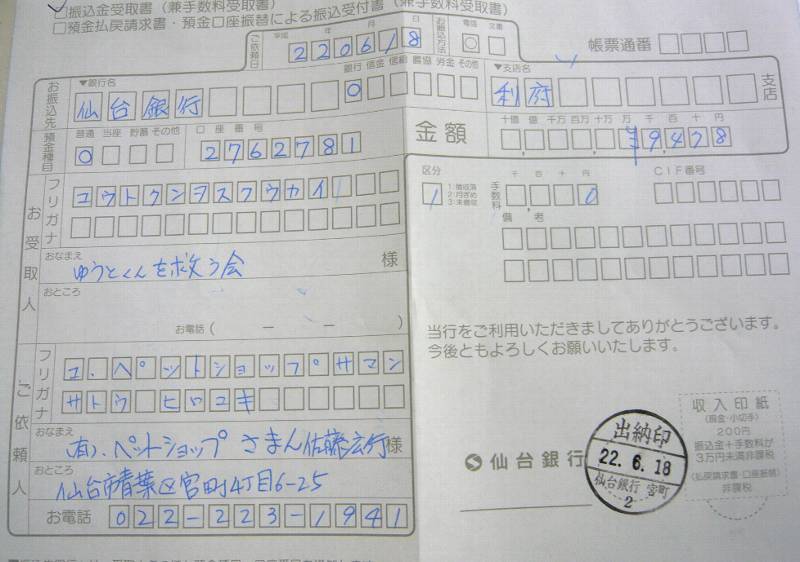 振込金受取書(兼手数料受取書)
預金払戻請求書・預金口座振替による振込受付書(兼手数料受取書)
ご依頼日 平成 年 月 日 220618
お振込方法 電話 文書 ○
帳票通番
お振込先
▼銀行名 銀行 信金 信組 農協 労金 その他
仙台銀行 ○
▼支店名
利府 支店
預金種目 普通 当座 貯蓄 その他 ○
口座番号 2762781
金額 十億 億 千万 百万 十万 万 千 百 十 円
¥9,428
お受取人
フリガナ
ユウトクンヲスクウカイ
おなまえ
ゆうとくんを救う会 様
おところ
お電話( ー ー )
区分 1 1:徴収済 2:月ぎめ 3:未徴収
手数料 千 百 十 円 0
CIF番号
備考
当行をご利用いただきましてありがとうございます。
今後ともよろしくお願いいたします。
ご依頼人
フリガナ
ユ.ペットショップサマン
サトウ ヒロユキ
おなまえ
(有).ペットショップ さまん佐藤宏行様
おところ
仙台市青葉区宮町4丁目6-25
お電話 022-223-1941
仙台銀行
出納印
22.6.18
仙台銀行 宮町
2
収入印紙
(現金・小切手)
200円
振込金+手数料が
3万円未満非課税
(払戻請求書・口座振替)
非課税